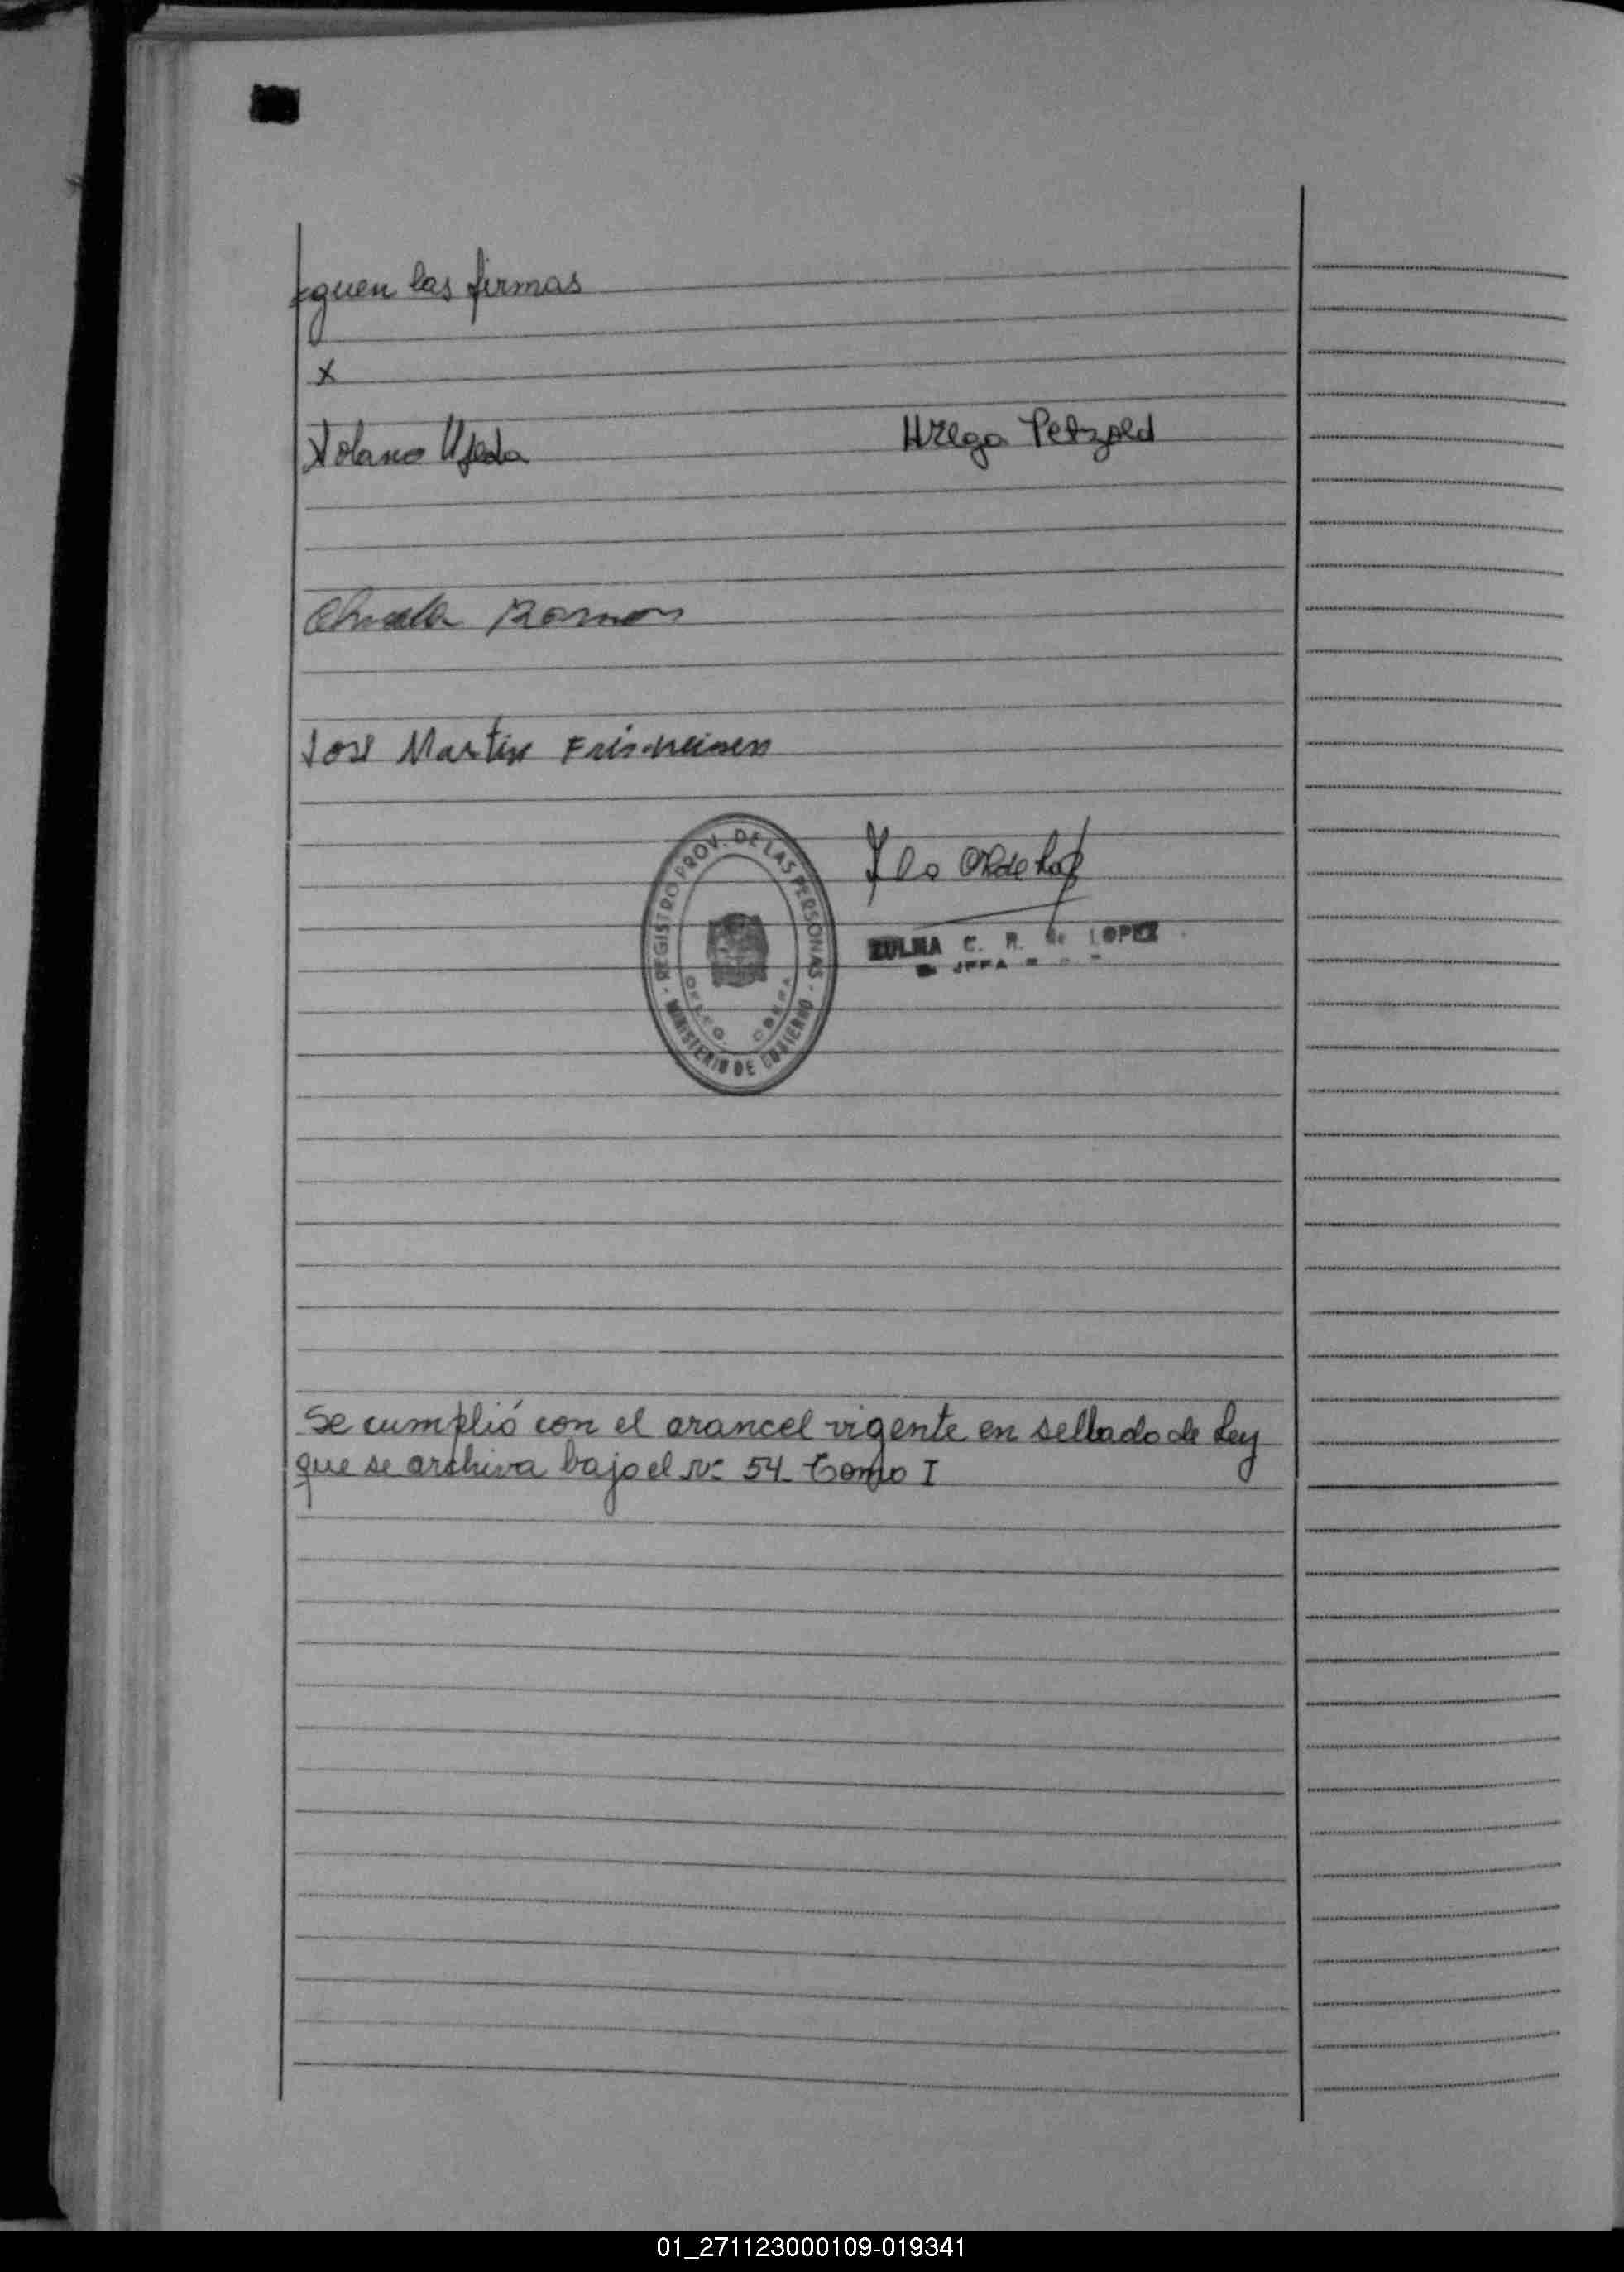 guen las firmas
x
Solano Ujeda Urega Petzold
Ramon
Jose Martin
REGISTRO PROV. DE LAS PERSONAS
MINISTERIO DE GOBIERNO
ZULMA C. R. de LOPEZ
JEFA
Se cumplió con el arancel vigente en sellado de Ley
que se archiva bajo el Nº 54 Tomo I
01_271123000109-019341